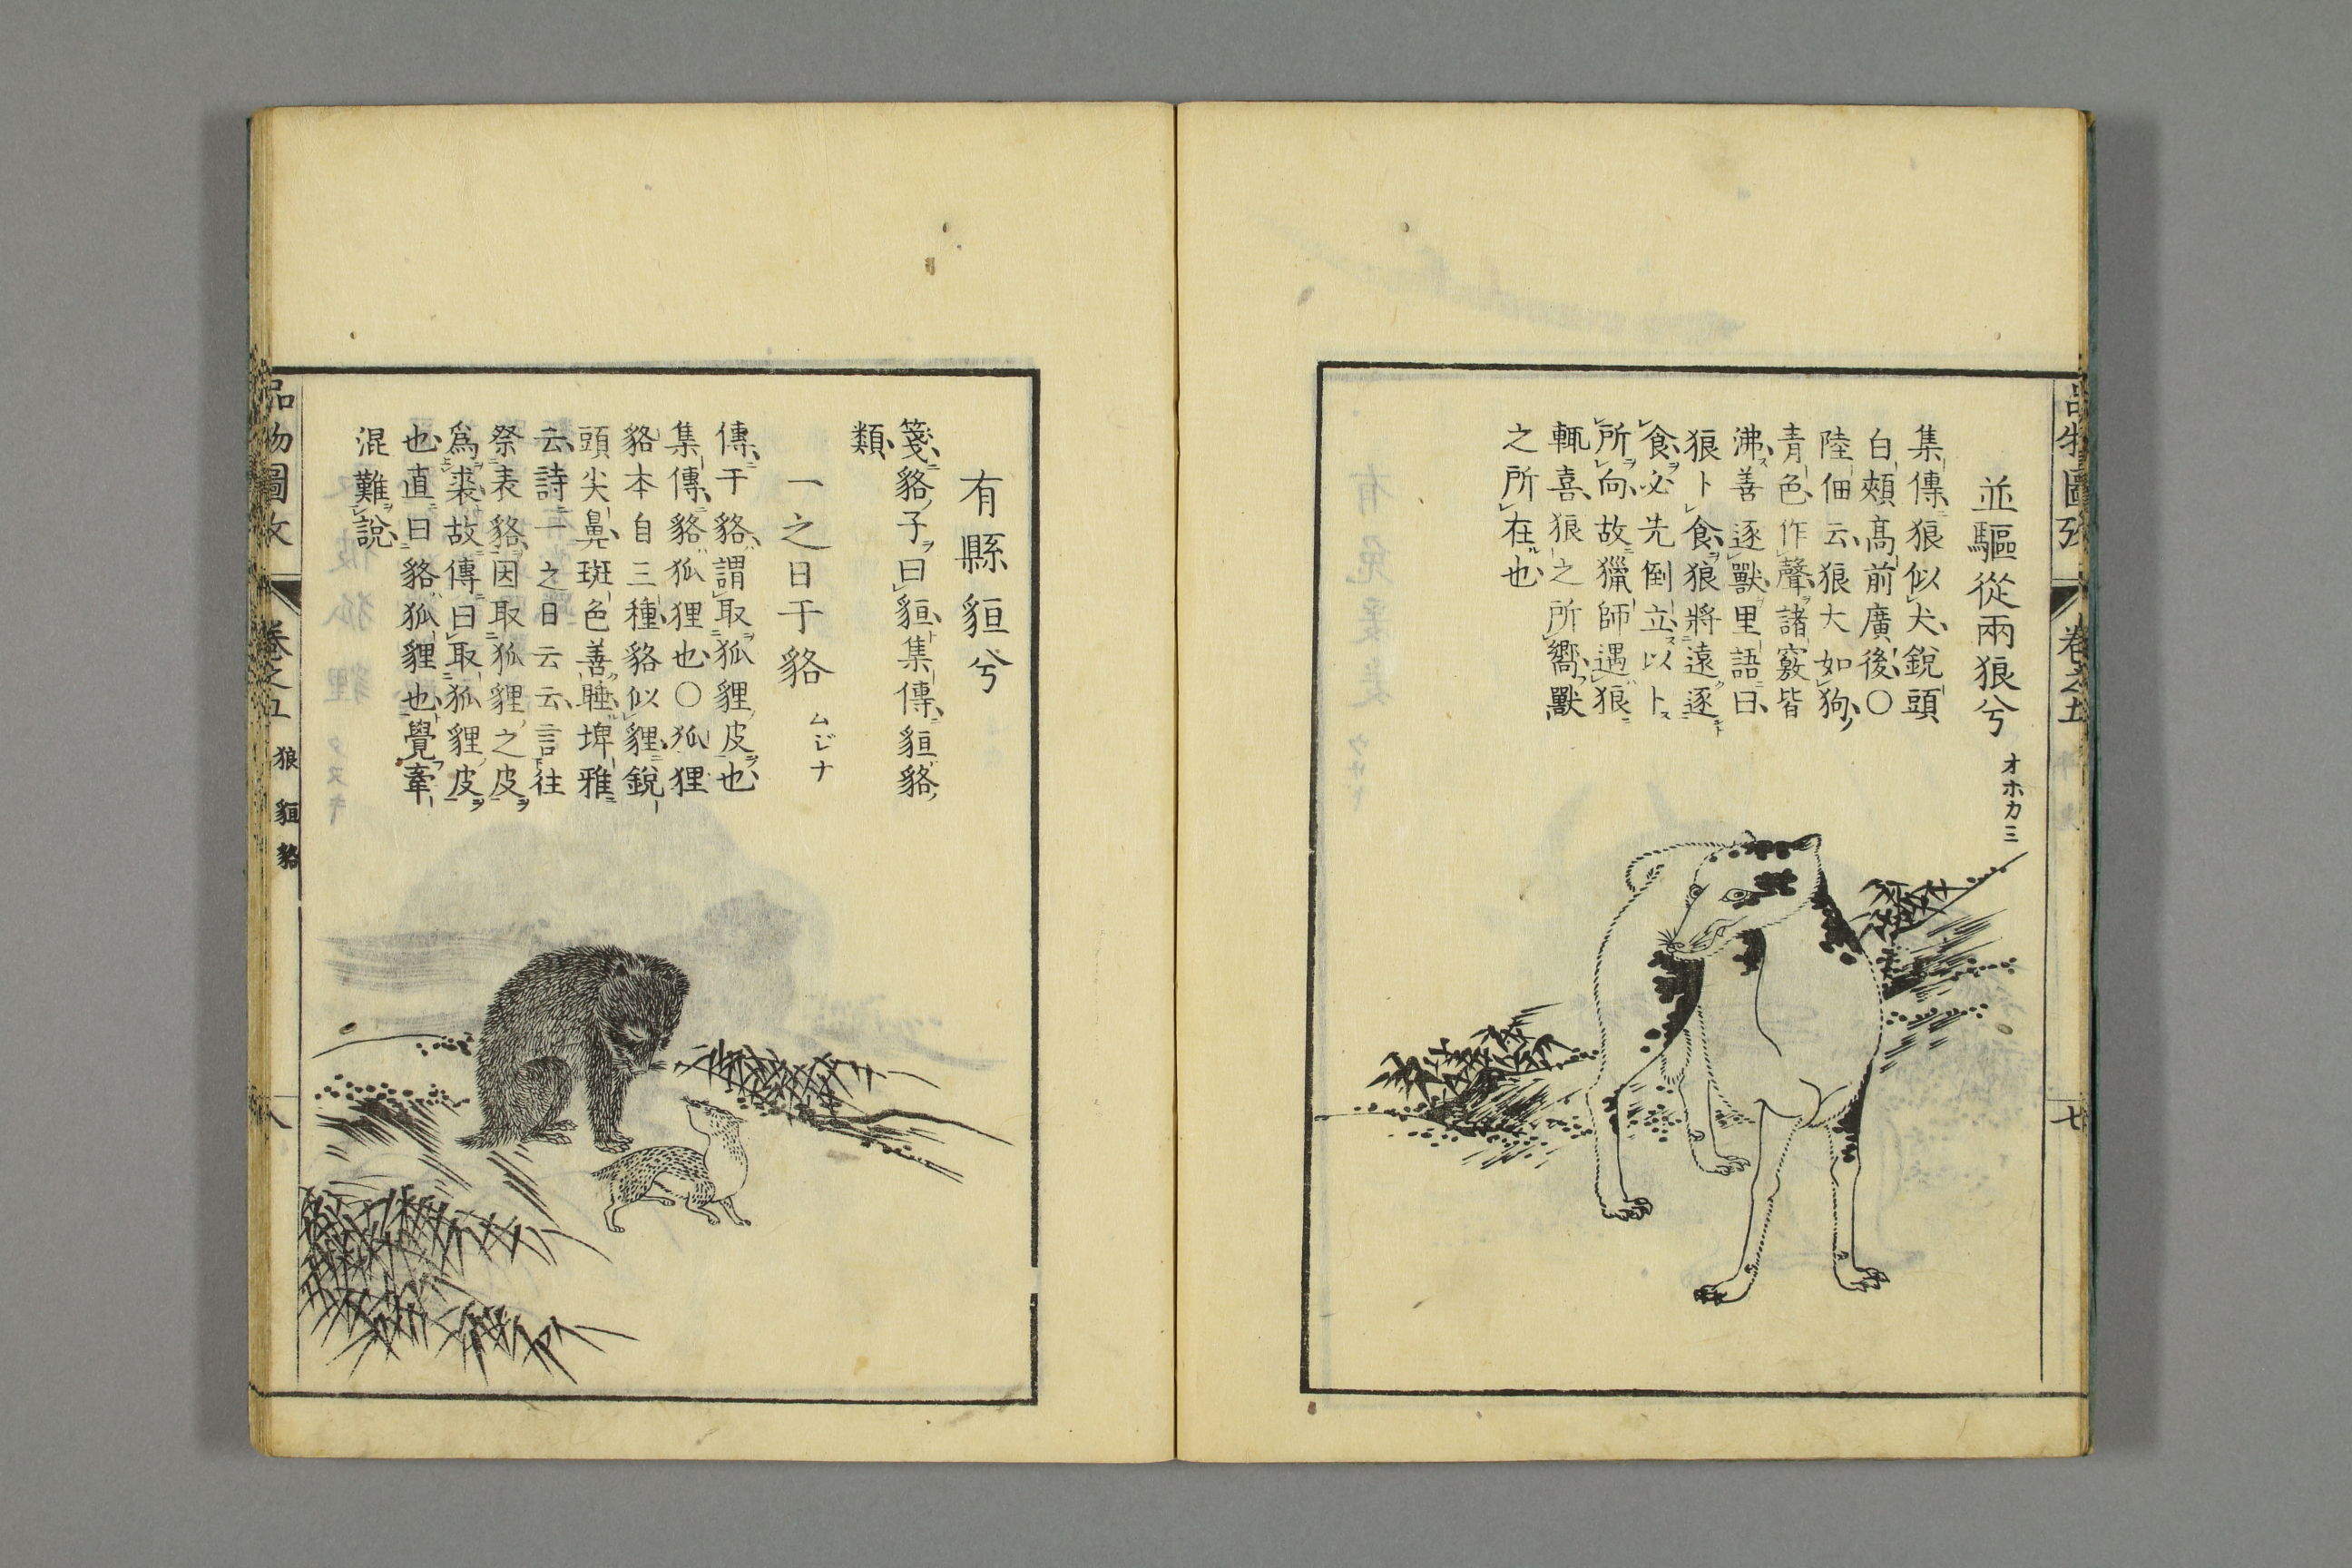 並驅從兩狼兮 オホカミ
集傳狼似犬銳頭
白頰高前廣後〇
陸佃云狼大如狗
青色作聲諸竅皆
沸善逐獸里語曰
狼卜食狼將遠逐
食必先倒立以卜
所向故獵師遇狼
輒喜狼之所嚮獸
之所在也
有縣貆兮
箋貉子曰貆集傳貆貉
類
一之日于貉 ムジナ
傳于貉謂取狐貍皮也
集傳貉狐狸也〇狐狸
貉本自三種貉似貍銳
頭尖鼻斑色善睡埤雅
云詩一之日云云言往
祭表貉因取狐貍之皮
爲裘故傳曰取狐貍皮
也直曰貉狐貍也覺牽
混難說
品物圖攷 卷之五 狼 貆 貉 八
品物圖攷 卷之五 七